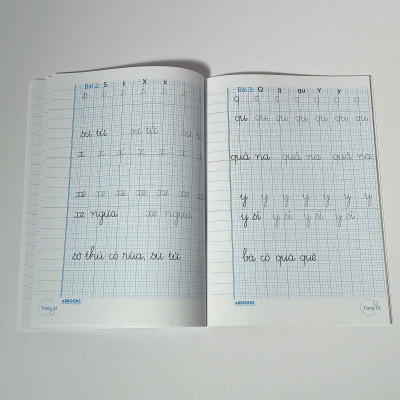 Bài 2: S s X x
s s s s s s s
sư tử sư tử sư tử
x x x x x x x
xe xe xe xe xe xe xe
xe ngựa xe ngựa
sở thú có rùa, sư tử
ABBOOKS
Bài 3: Q q qu Y y
q q q q q q q
qu qu qu qu qu qu qu
quả na quả na quả na
y y y y y y y
y sĩ y sĩ y sĩ y sĩ
bà có quà quê
ABBOOKS
Trang 33